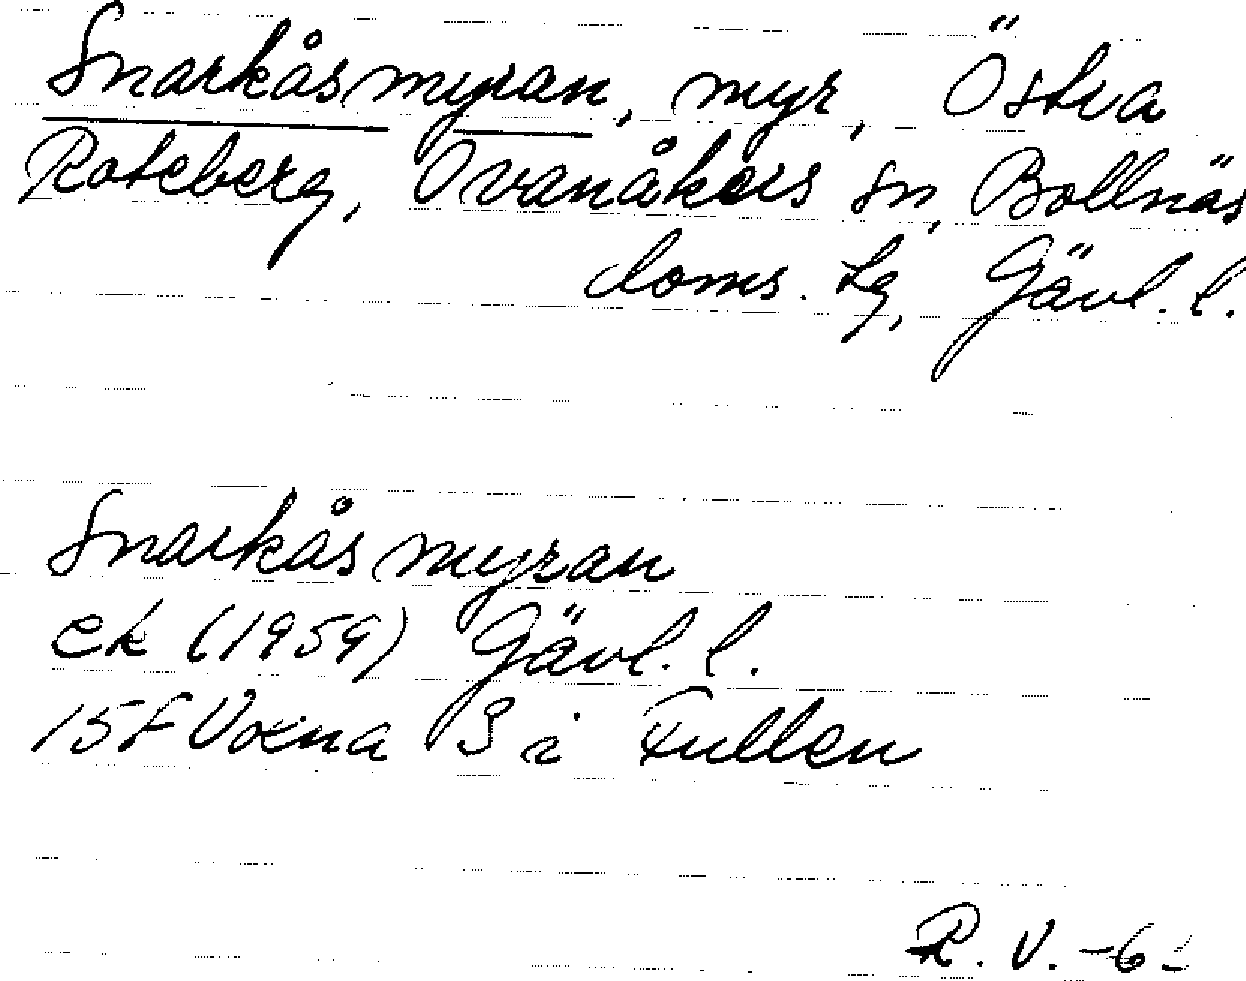 Snarkåsmyran, myr, Östra
Roteberg, Ovanåkers sn, Bollnäs
doms. tg, Gävl. l.
Snarkåsmyran
ek (1959) Gävl. l.
15F Voxna 3 i Fullen
R. V. -6